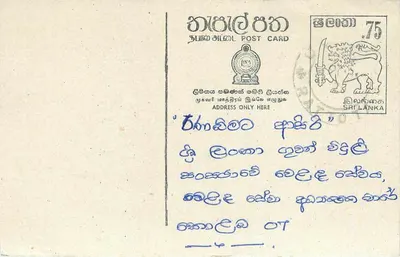 තැපැල් පත
அஞ்சல் அட்டை POST CARD
ශ්‍රී ලංකා .75
ලිපිනය පමණක් මෙහි ලියන්න
முகவரி மாத்திரம் இங்கே எழுதுக
ADDRESS ONLY HERE
இலங்கை
SRI LANKA
"රණබිමට ආසිරි"
ශ්‍රී ලංකා ගුවන් විදුලි
සංස්ථාවේ වෙළඳ සේවය,
වෙළඳ සේවා අධ්‍යක්ෂ
කොළඹ 07